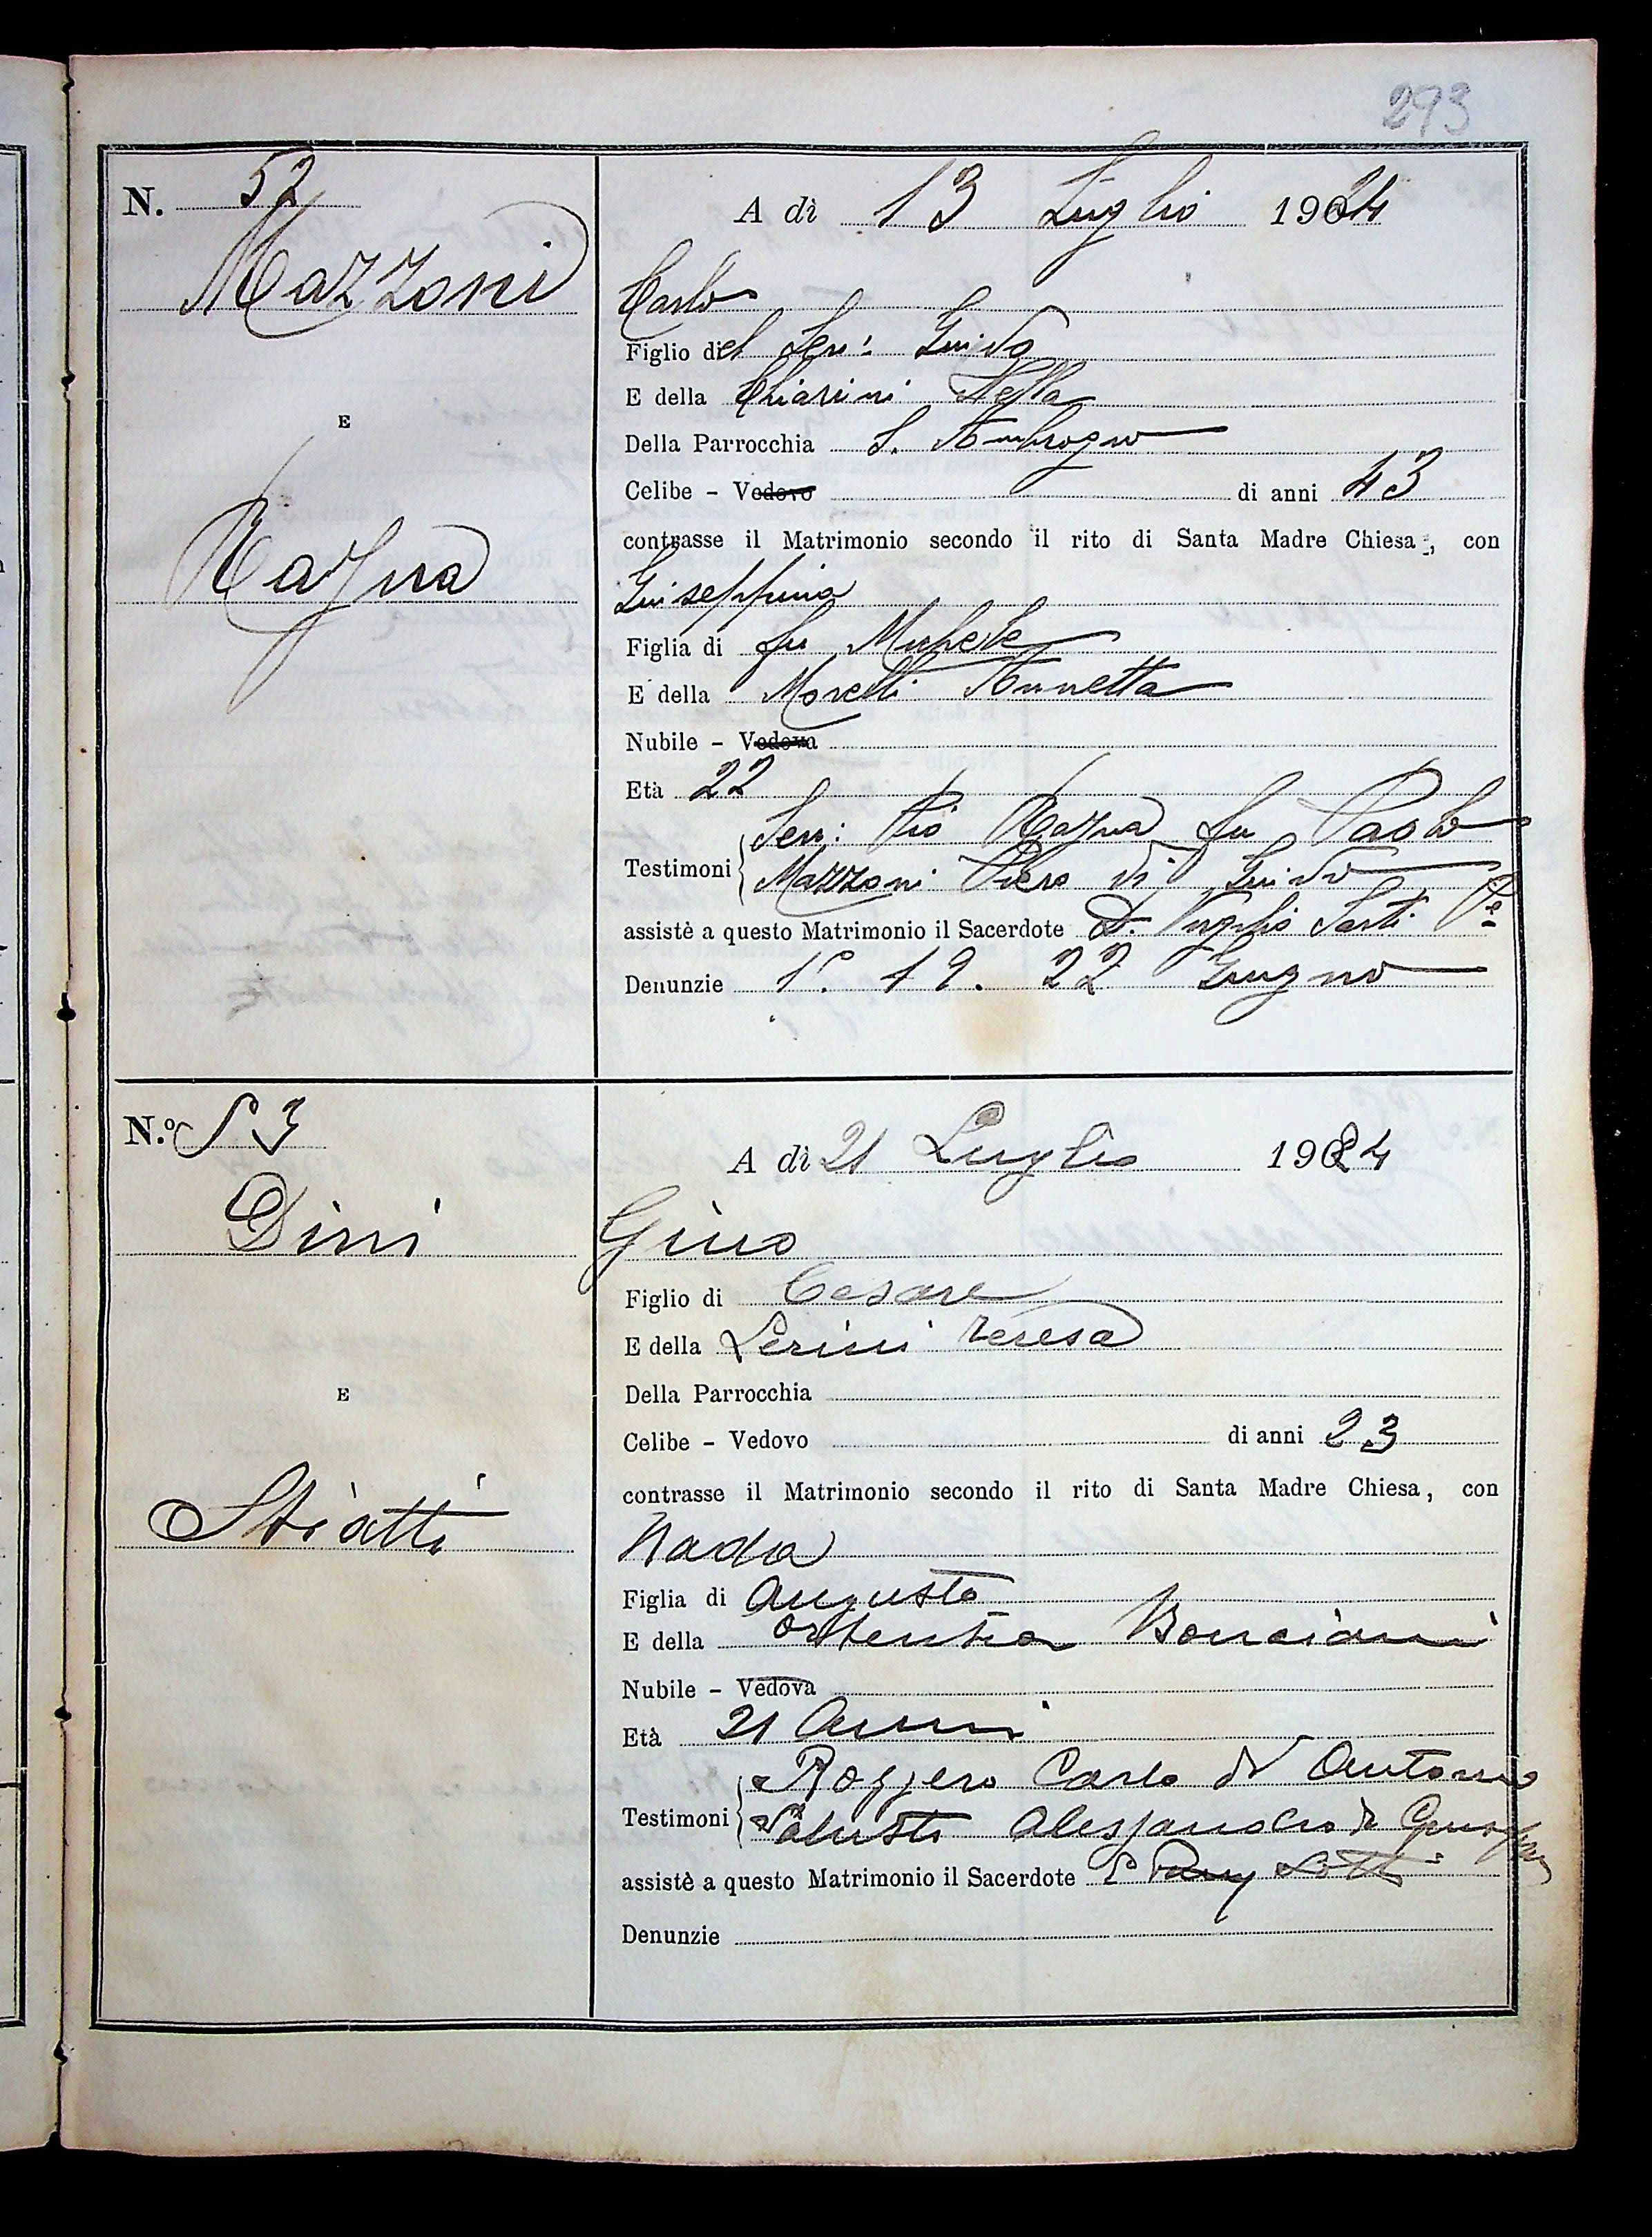 293
N. 52
A dì 13 Luglio 1924
Mazzoni
Carlo
Figlio del Sen: Guido
E della Chiarini Nella
E
Della Parrocchia S. Ambrogio
Celibe - Vedovo di anni 43
contrasse il Matrimonio secondo il rito di Santa Madre Chiesa, con
Rajna
Giuseppina
Figlia di fu Michele
E della Morelli Annetta
Nubile - Vedova
Età 22
Testimoni
Sen: Pio Rajna fu Paolo
Mazzoni Piero di Guido
assistè a questo Matrimonio il Sacerdote D. Virgilio Sarti
Denunzie 1º. 19. 22 Giugno
N.º 53
A dì 21 Luglio 1924
Dini
Gino
Figlio di Cesare
E della Teresa
E
Della Parrocchia
Celibe - Vedovo di anni 23
contrasse il Matrimonio secondo il rito di Santa Madre Chiesa, con
Striatti
Nada
Figlia di Augusto
E della Ortensia Bonciani
Nubile - Vedova
Età 21 Anni
Testimoni
Roggero Carlo di Antonio
Salusti Alessandro di
assistè a questo Matrimonio il Sacerdote
Denunzie